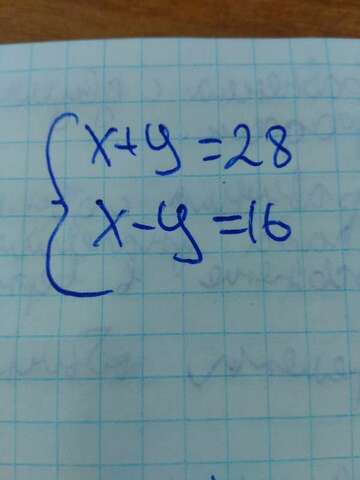 x+y=28
x-y=16